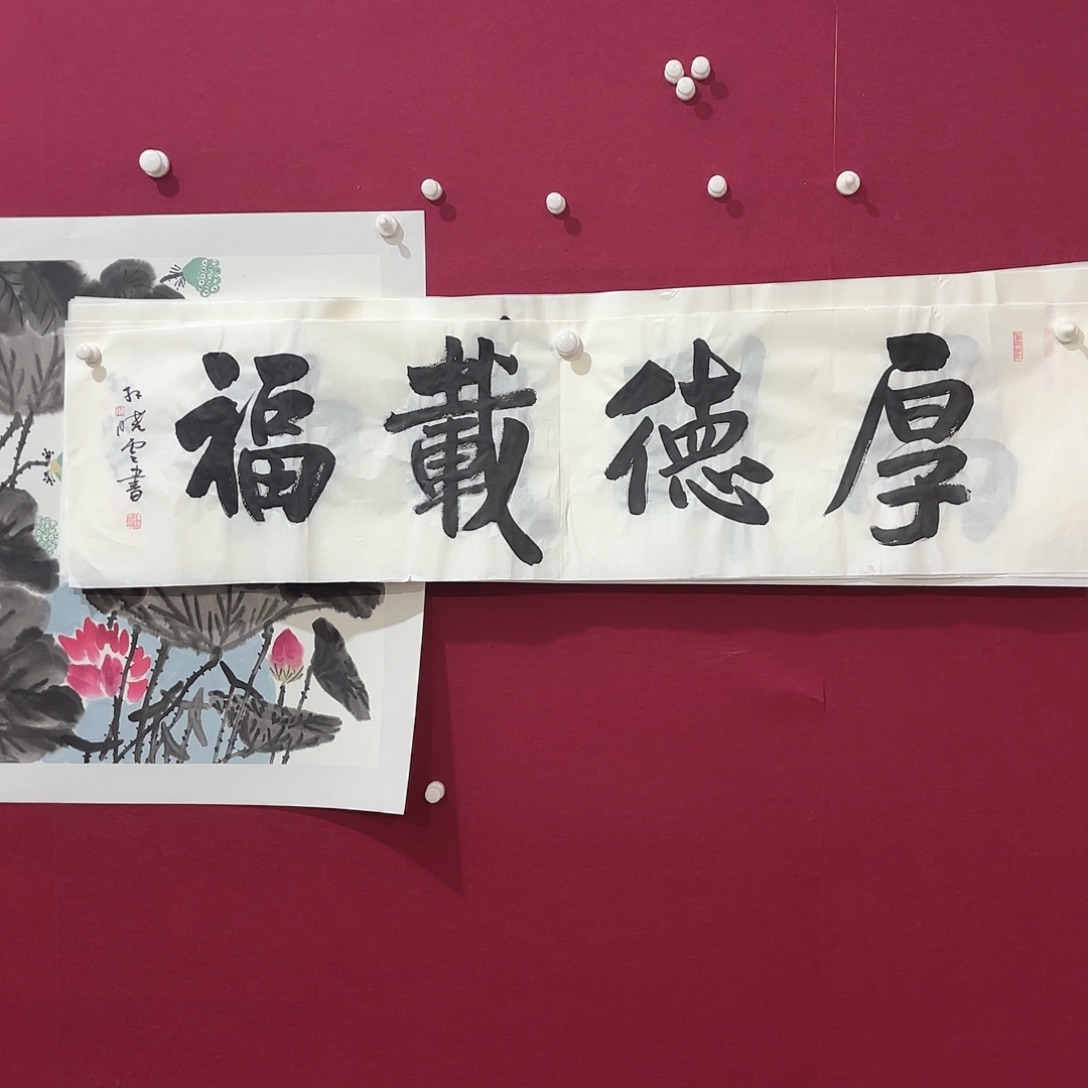 厚德載福
孙晓云書